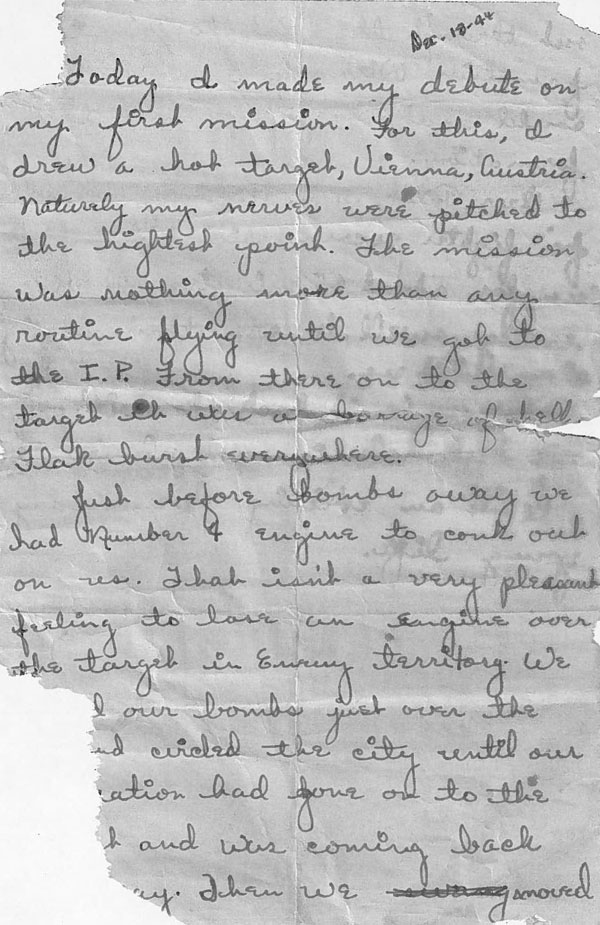 Dec. 18-44
Today I made my debute on
my first mission. For this, I
drew a hot target, Vienna, Austria.
Naturely my nerves were pitched to
the hightest point. The mission
was nothing more than any
routine flying until we got to
the I.P. From there on to the
target it was a barrage of hell.
Flak burst everywhere.
Just before bombs away we
had Number 4 engine to conk out
on us. That isn't a very pleasant
feeling to lose an engine over
the target in Enemy territory. We
l our bombs just over the
nd circled the city until our
ation had gone on to the
t and was coming back
ay. Then we moved